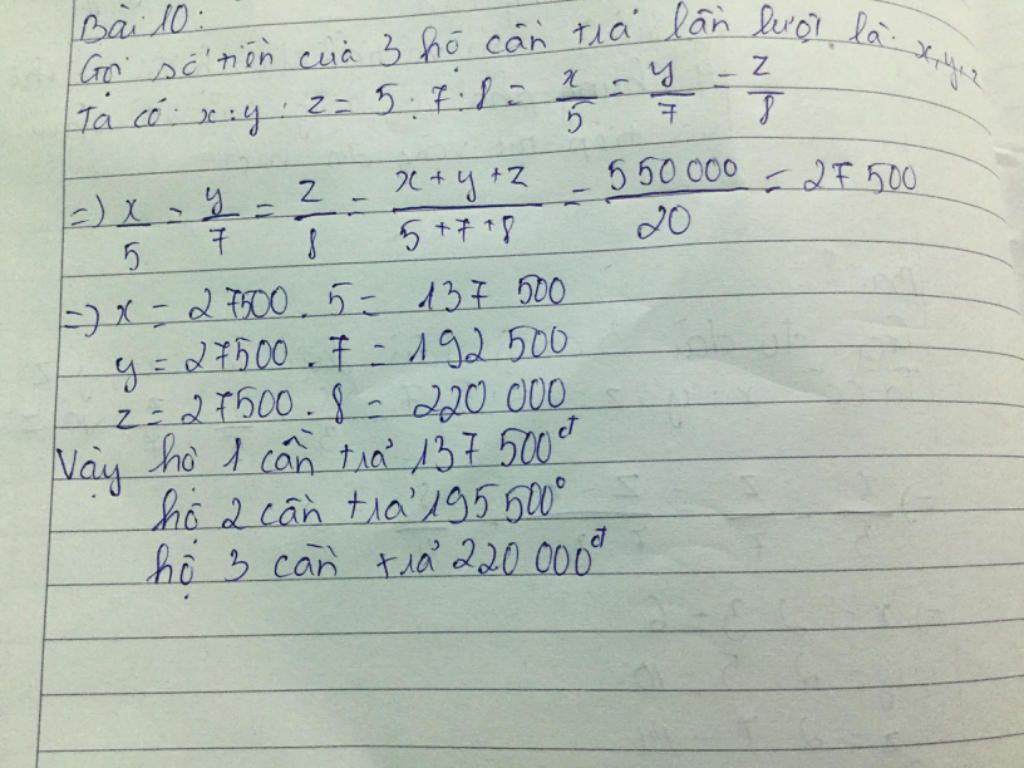 Bài 10:
Gọi số tiền của 3 hộ cần trả lần lượt là: x, y, z
Ta có: x : y : z = 5 : 7 : 8 = x/5 = y/7 = z/8
=> x/5 = y/7 = z/8 = (x+y+z)/(5+7+8) = 550 000/20 = 27 500
=> x = 27500 . 5 = 137 500
y = 27500 . 7 = 192 500
z = 27500 . 8 = 220 000
Vậy hộ 1 cần trả 137 500đ
hộ 2 cần trả 195 500đ
hộ 3 cần trả 220 000đ